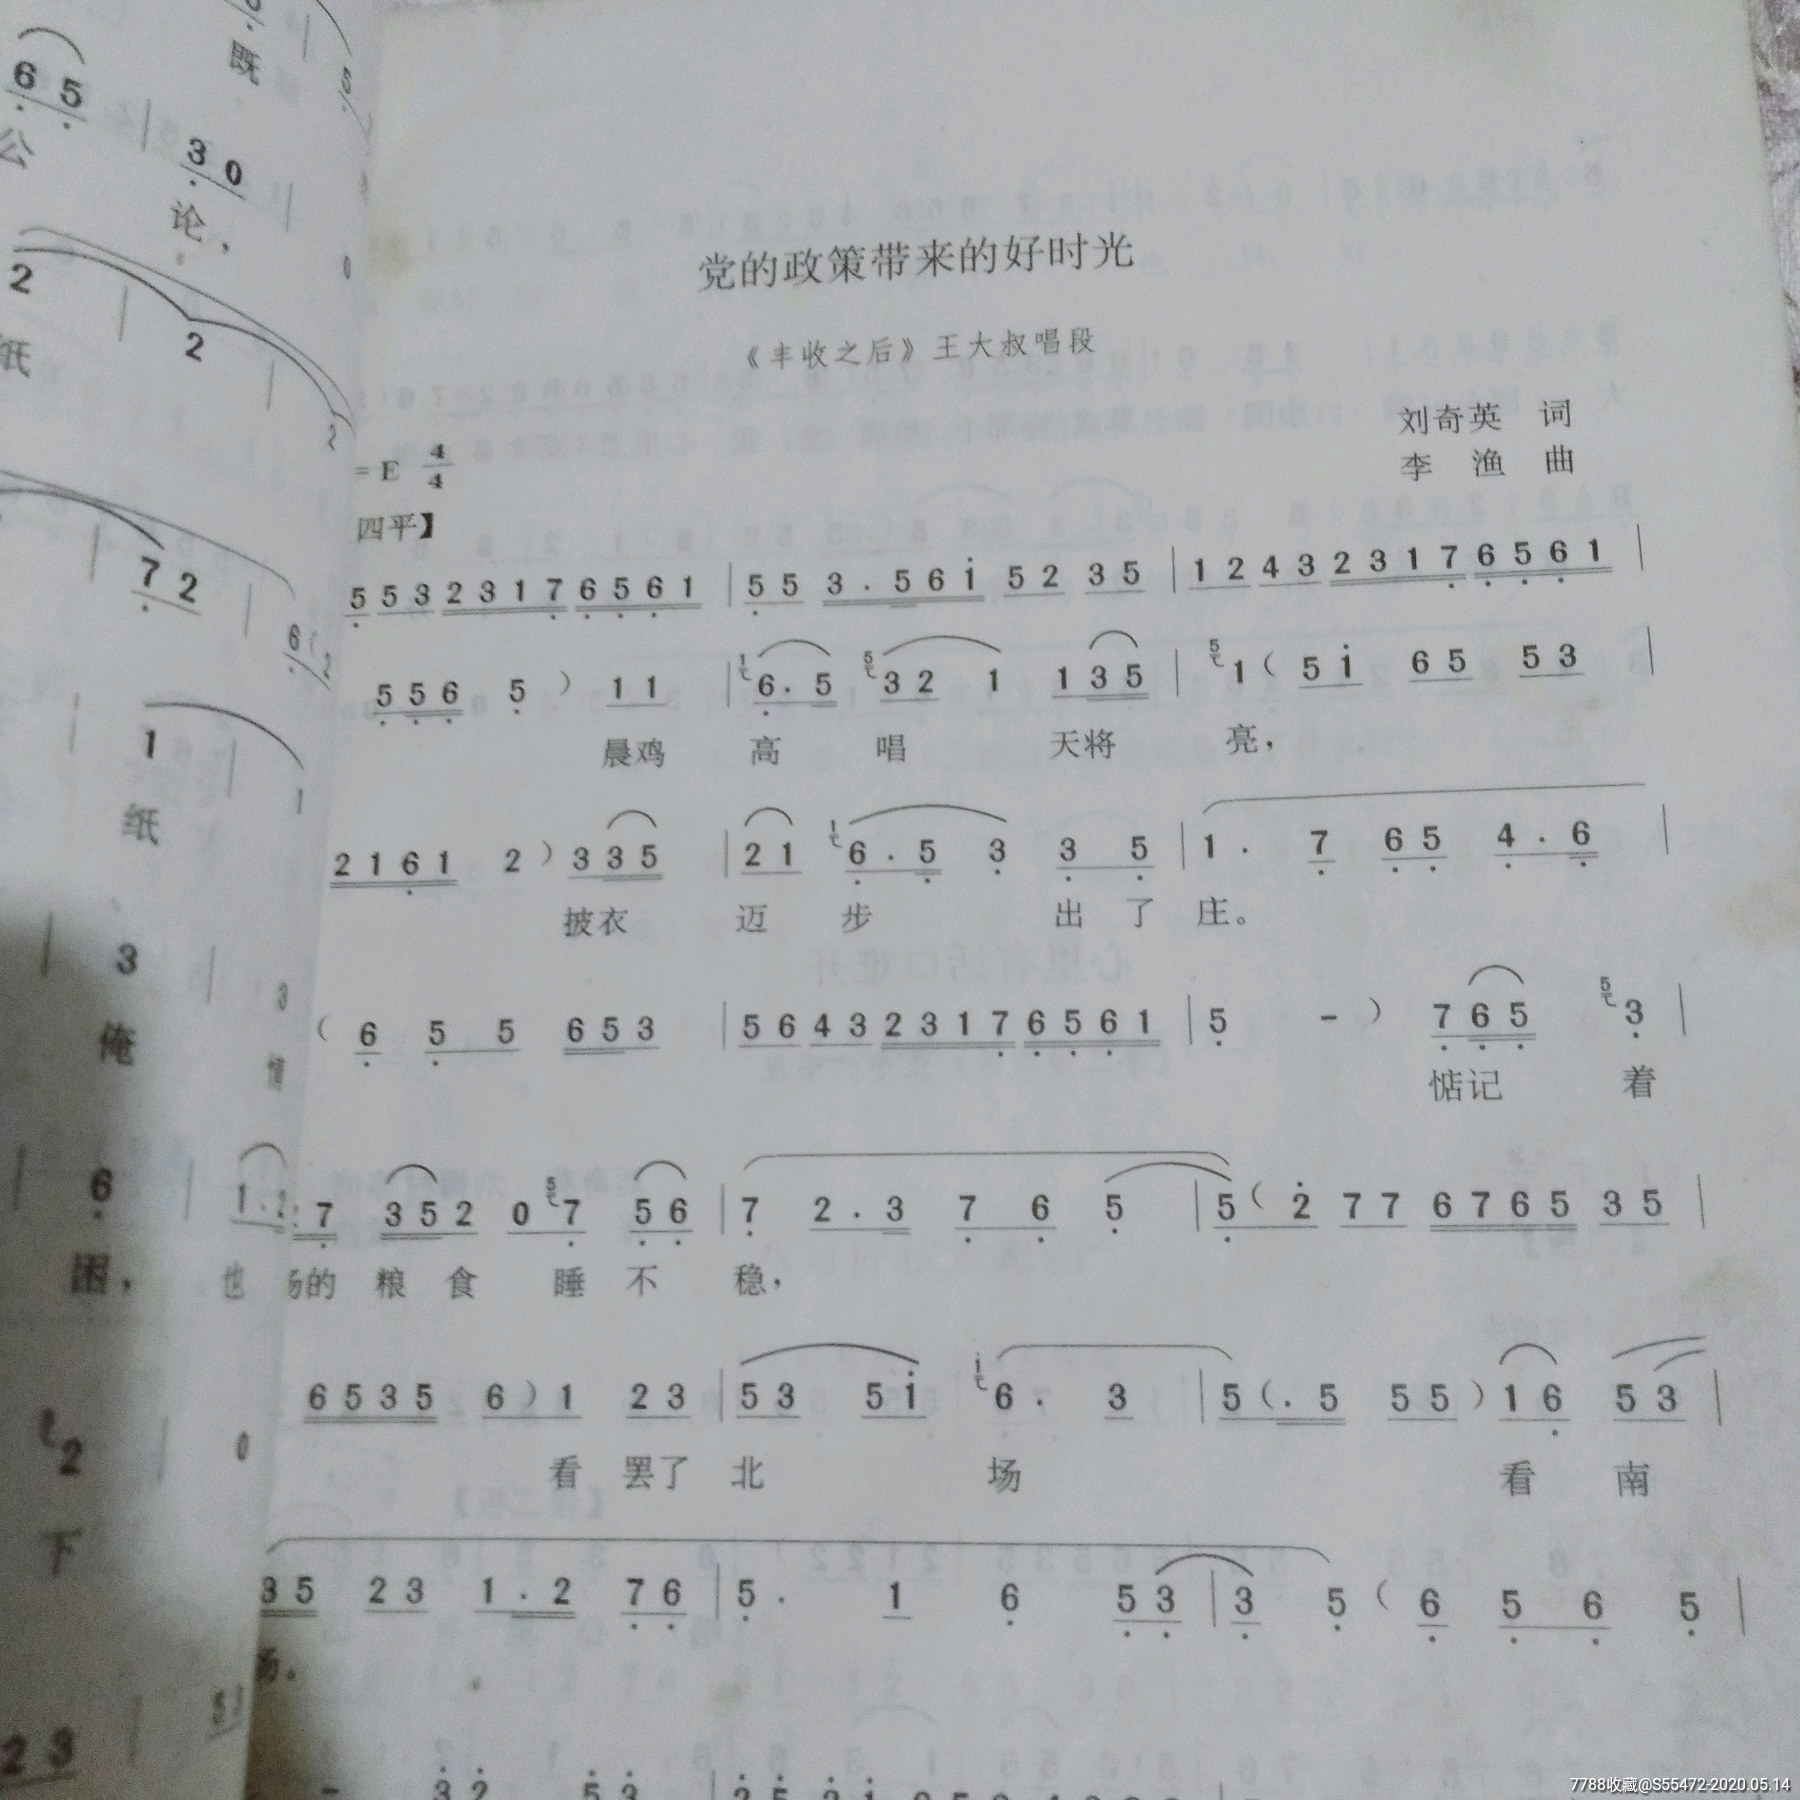 党的政策带来的好时光
《丰收之后》王大叔唱段
刘奇英 词
李 渔 曲
= E 4/4
四平】
5 5 3 2 3 1 7 6 5 6 1 | 5 5 3 . 5 6 i 5 2 3 5 | 1 2 4 3 2 3 1 7 6 5 6 1 |
5 5 6 5 ) 1 1 | 6 . 5 3 2 1 1 3 5 | 1 ( 5 i 6 5 5 3 |
晨鸡 高 唱 天将 亮，
2 1 6 1 2 ) 3 3 5 | 2 1 6 . 5 3 3 5 | 1 . 7 6 5 4 . 6 |
披衣 迈 步 出 了 庄。
( 6 5 5 6 5 3 | 5 6 4 3 2 3 1 7 6 5 6 1 | 5 - ) 7 6 5 3 |
惦记 着
7 3 5 2 0 7 5 6 | 7 2 . 3 7 6 5 | 5 ( 2 7 7 6 7 6 5 3 5 |
场的 粮 食 睡 不 稳，
6 5 3 5 6 ) 1 2 3 | 5 3 5 i 6 . 3 | 5 ( . 5 5 5 ) 1 6 5 3 |
看 罢了 北 场 看 南
3 5 2 3 1 . 2 7 6 | 5 . 1 6 5 3 | 3 5 ( 6 5 6 5 |
场。
既
6 5
公
3 0
论，
2 2
纸
7 2
1
纸
3
俺
情
6
困， 也
2
下
2 3
7788收藏@S55472-2020.05.14